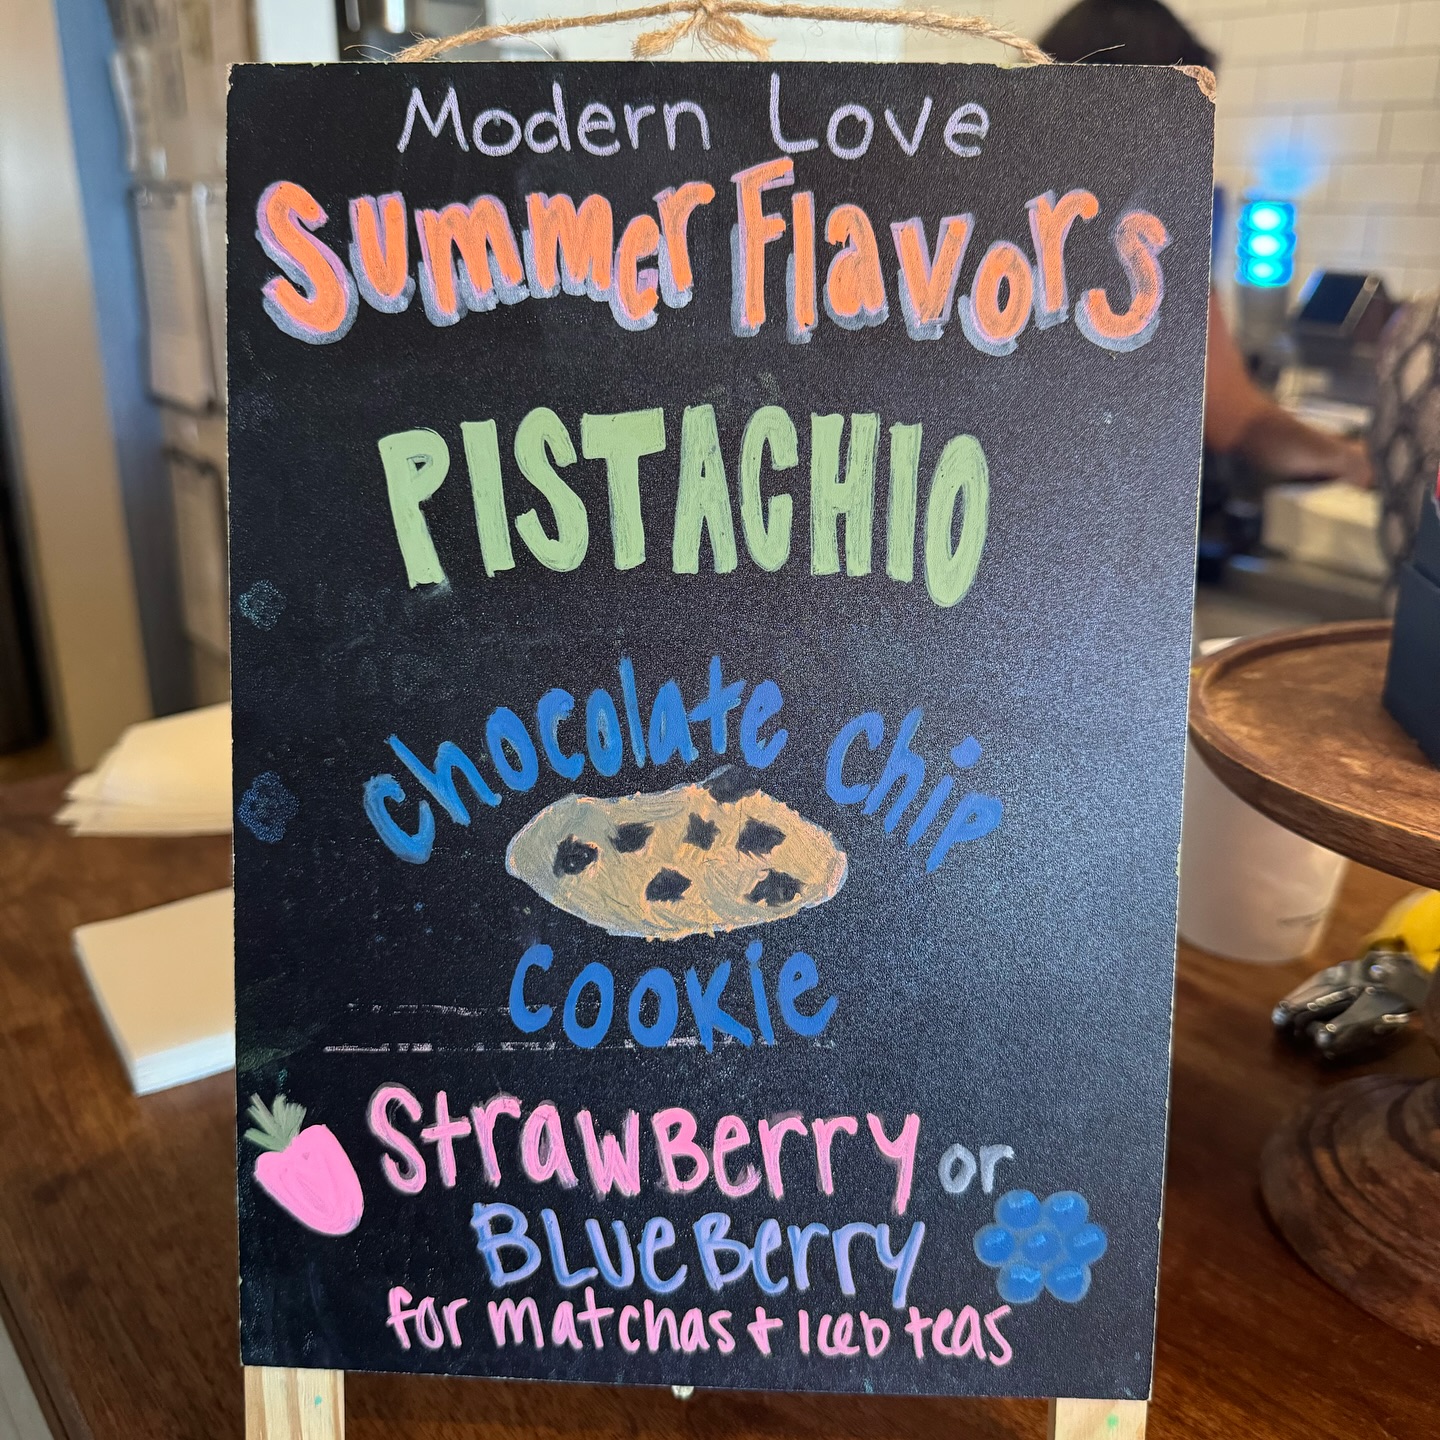 Modern Love
Summer Flavors
PISTACHIO
chocolate chip
cookie
Strawberry or
Blueberry
for matchas + Iced teas